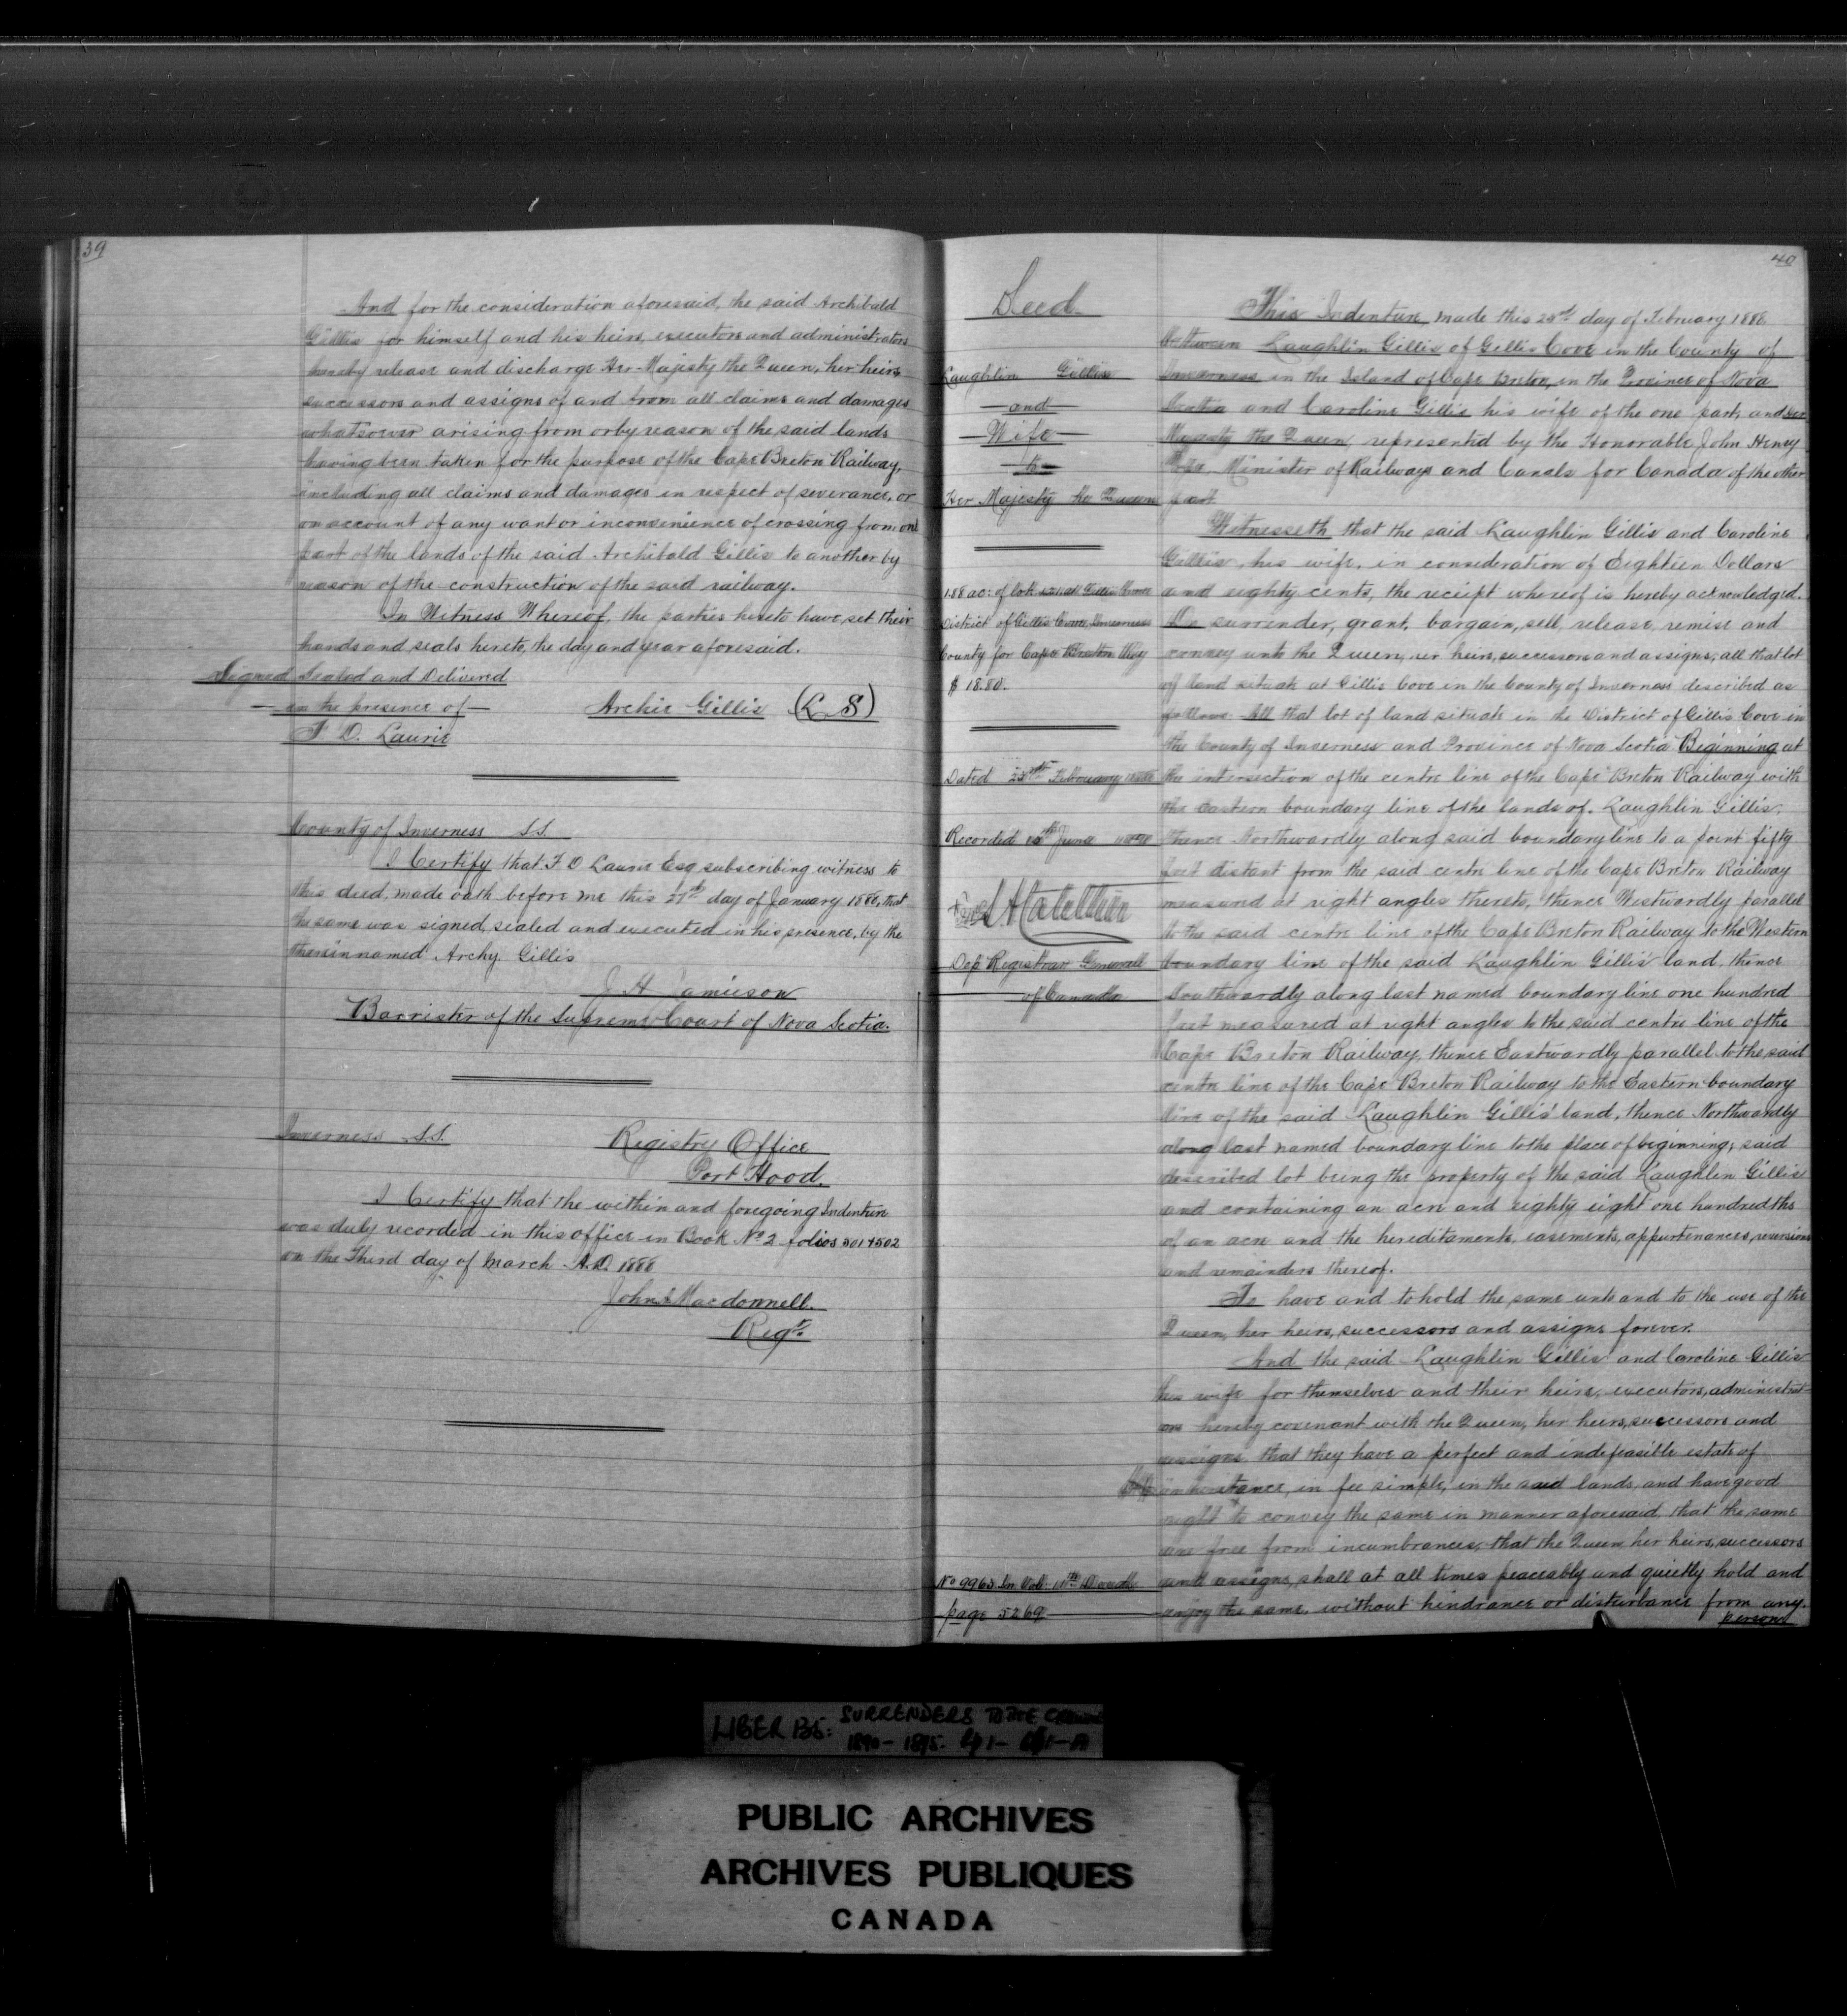 39
And for the consideration aforesaid, the said Archibald
Gillis for himself and his heirs, executors and administrators
hereby release and discharge Her Majesty the Queen, her heirs
successors and assigns of and from all claims and damages
whatsoever arising from or by reason of the said lands
having been taken for the purpose of the Cape Breton Railway,
including all claims and damages in respect of severance, or
on account of any want or inconvenience of crossing from one
part of the lands of the said Archibald Gillis to another by
reason of the construction of the said railway.
In Witness Whereof, the parties hereto have set their
hands and seals hereto, the day and year aforesaid.
Signed Sealed and Delivered
in the presence of
Archie Gillis (L S)
F D. Laurie
County of Inverness S.S.
I Certify that F D Laurie Esq subscribing witness to
this deed, made oath before me this day of January 1888, that
the same was signed, sealed and executed in his presence, by the
therein named Archy Gillis
J A Jamieson
Barrister of the Supreme Court of Nova Scotia.
Inverness S.S.
Registry Office
Port Hood.
I Certify that the within and foregoing Indenture
was duly recorded in this office in Book No 2 folios 501 & 502
on the Third day of March A.D. 1888
John Macdonnell.
Regr.
40
Deed
Laughlin Gillis
and
Wife
to
Her Majesty the Queen
1.88 ac: of
District of Gillis Cove, Inverness
County for Cape Breton Rlwy
$ 18.80.
Dated February 1888
Recorded June 1890
Dep Registrar General
of Canada
No 9963. In Vol:
page 5269
This Indenture made this day of February 1888
between Laughlin Gillis of Gillis Cove in the County of
Inverness in the Island of Cape Breton, in the Province of Nova
Scotia and Caroline Gillis his wife of the one part, and Her
Majesty the Queen represented by the Honorable John Henry
Pope Minister of Railways and Canals for Canada of the other
part.
Witnesseth that the said Laughlin Gillis and Caroline
Gillis, his wife, in consideration of Eighteen Dollars
and eighty cents, the receipt whereof is hereby acknowledged.
Do surrender, grant, bargain, sell, release, remise and
convey unto the Queen, her heirs, successors and assigns, all that lot
of land situate at Gillis Cove in the County of Inverness described as
follows. All that lot of land situate in the District of Gillis Cove in
the County of Inverness and Province of Nova Scotia Beginning at
the intersection of the centre line of the Cape Breton Railway with
the Eastern boundary line of the lands of Laughlin Gillis,
thence Northwardly along said boundary line to a point fifty
feet distant from the said centre line of the Cape Breton Railway
measured at right angles thereto, thence Westwardly parallel
to the said centre line of the Cape Breton Railway to the Western
boundary line of the said Laughlin Gillis' land, thence
Southwardly along last named boundary line one hundred
feet measured at right angles to the said centre line of the
Cape Breton Railway, thence Eastwardly parallel to the said
centre line of the Cape Breton Railway to the Eastern boundary
line of the said Laughlin Gillis' land, thence Northwardly
along last named boundary line to the place of beginning, said
described lot being the property of the said Laughlin Gillis
and containing an acre and eighty eight one hundredths
of an acre and the hereditaments, easements, appurtenances, reversions
and remainders thereof.
To have and to hold the same unto and to the use of the
Queen, her heirs, successors and assigns forever.
And the said Laughlin Gillis and Caroline Gillis
his wife for themselves and their heirs, executors, administrat-
ors hereby covenant with the Queen, her heirs, successors and
assigns, that they have a perfect and indefeasible estate of
inheritance, in fee simple, in the said lands, and have good
right to convey the same in manner aforesaid, that the same
are free from incumbrances, that the Queen, her heirs, successors
and assigns, shall at all times peaceably and quietly hold and
enjoy the same, without hindrance or disturbance from any
person
LIBER B5: SURRENDERS TO THE CROWN
1890 - 1895.
PUBLIC ARCHIVES
ARCHIVES PUBLIQUES
CANADA